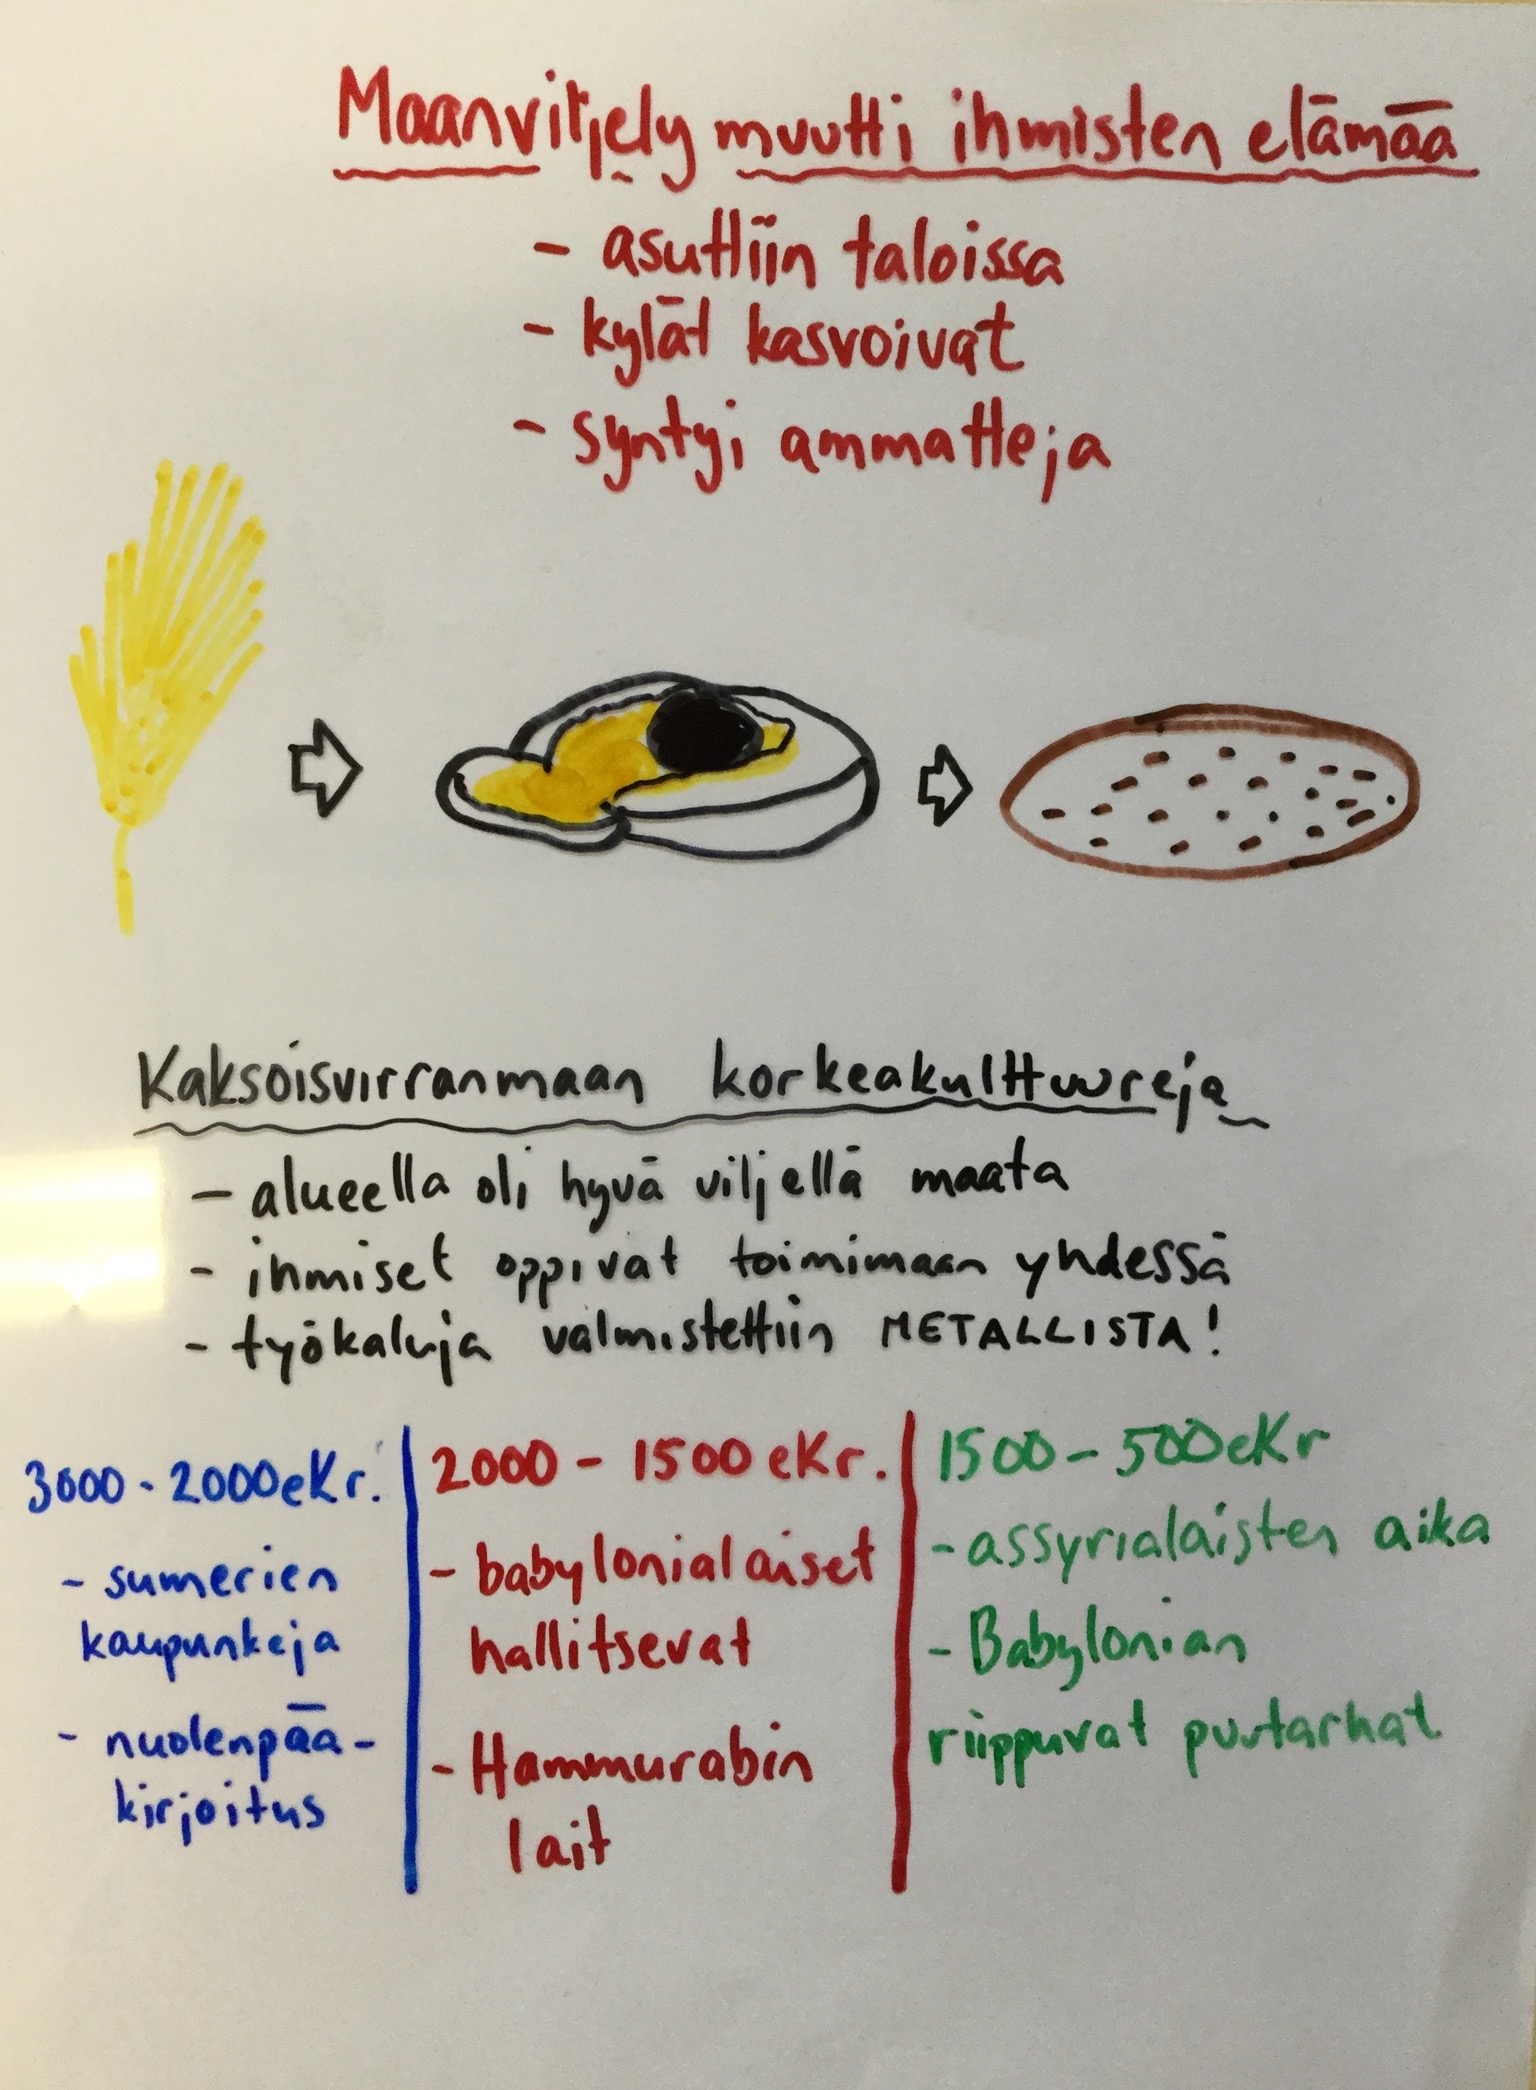 Maanviljely muutti ihmisten elämää
- asuttiin taloissa
- kylät kasvoivat
- syntyi ammatteja
Kaksoisvirranmaan korkeakulttuureja
- alueella oli hyvä viljellä maata
- ihmiset oppivat toimimaan yhdessä
- työkaluja valmistettiin METALLISTA!
3000 - 2000 eKr.
- sumerien
kaupunkeja
- nuolenpää-
kirjoitus
2000 - 1500 eKr.
- babylonialaiset
hallitsevat
- Hammurabin
lait
1500 - 500 eKr
- assyrialaisten aika
- Babylonian
riippuvat puutarhat